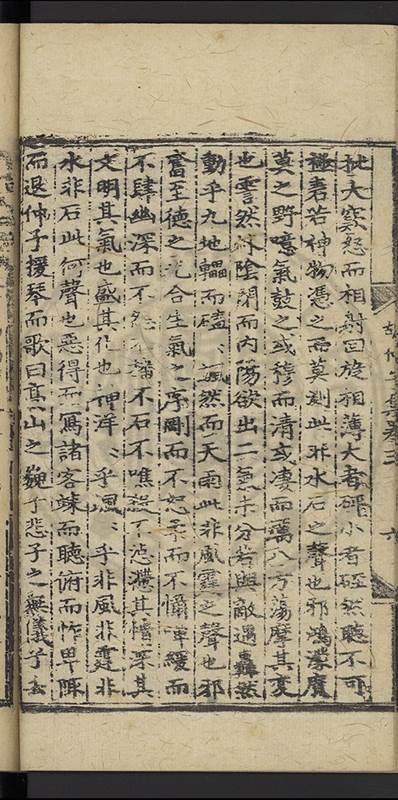 批大窾怒而相射回旋相薄大者砰小者砰然聽不可
極者若神物憑之而莫測此非水石之聲也邪鴻濛廣
莫之野噫氣鼓之或穆而清或凄而厲八方蕩摩其变
也雲然外陰閉而內陽欲出二氣未分若與敵遇轟然
動乎九地轠而磕、颯然而天雨此非風霆之聲也邪
畜至德之光合生氣之序剛而不怒柔而不懾嘽緩而
不肆幽深而不怨不石不噍殺不怘懘其憯栗其
文明其氣也盛其化也神洋、乎渢、乎非風非霆非
水非石此何聲也惡得而寫諸客竦而聽俯而怍卑陬
而退仲子援琴而歌曰高山之巍兮悲子之無儀兮
集卷三
六